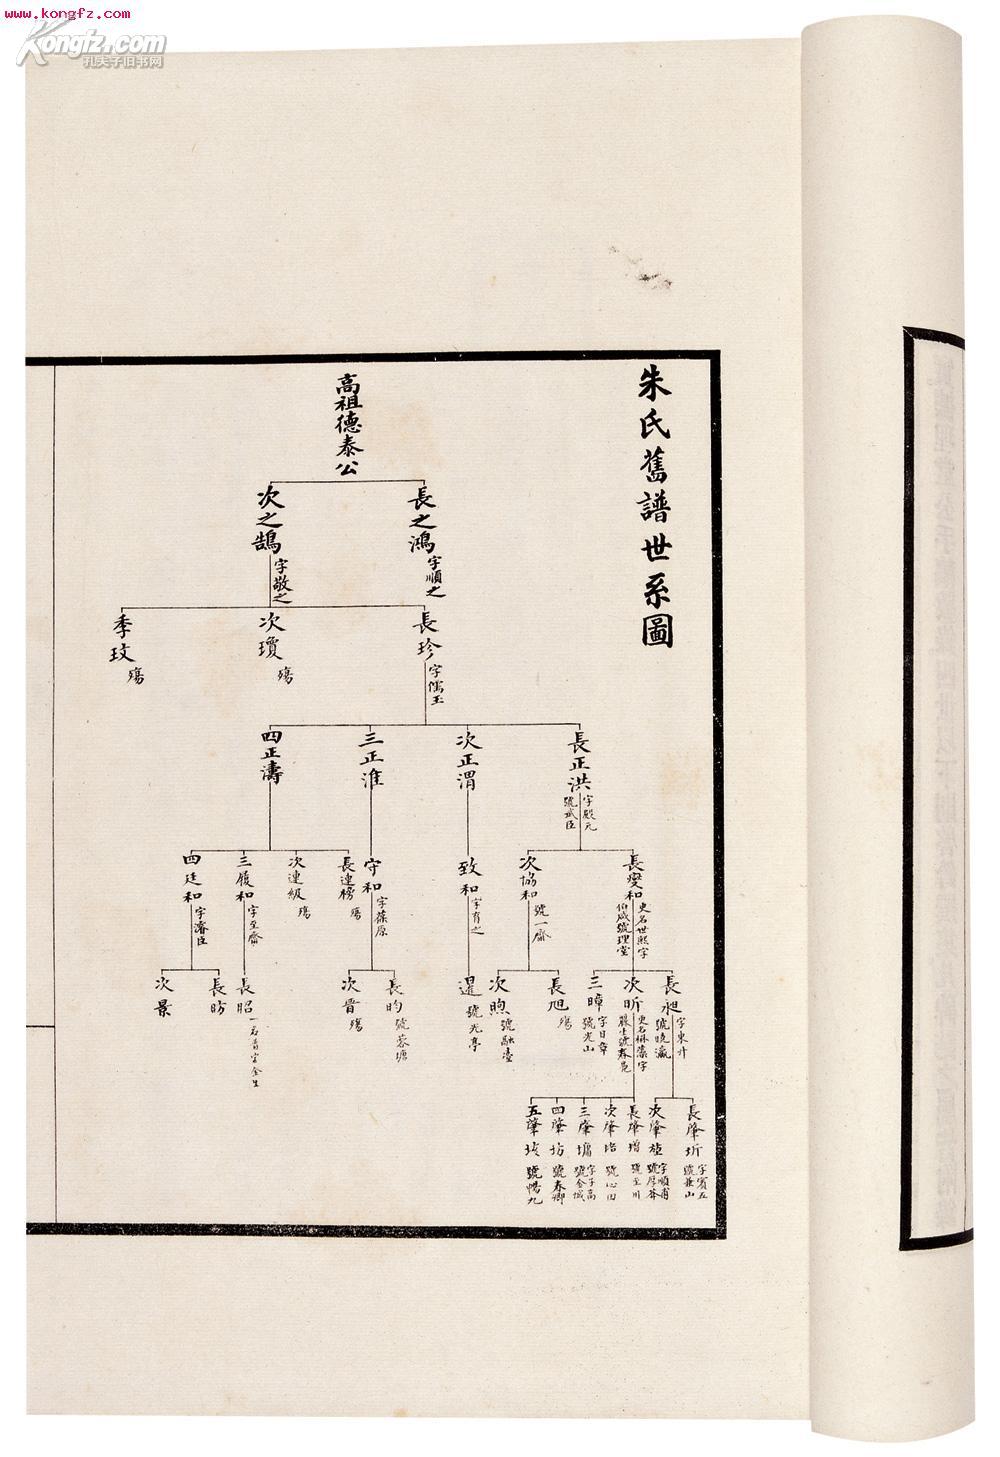 www.kongfz.com
Kongfz.com
孔夫子旧书网
朱氏舊譜世系圖
高祖德泰公
長之鴻
字順之
次之鵠
字敬之
長珍
字儒玉
次瓊
殤
季玟
殤
長正洪
字殿元
號武臣
次正渭
三正淮
四正濤
長燮和
更名世熙字
伯咸號理堂
次協和
號一齋
致和
字育之
守和
字葆原
長連榜
殤
次連級
殤
三履和
字至齋
四廷和
字濬臣
長昶
字東升
號曉瀛
次昕
三暲
字日章
號光山
長旭
殤
次煦
號融臺
暹
號光亭
長昀
號蓉塘
次晉
殤
長昭
長昉
次景
長肇圻
字賓五
號兼山
次肇
字順甫
長肇增
號至川
次肇培
號心田
三肇墉
字子高
號金城
四肇坊
號春卿
五肇垓
號暢九